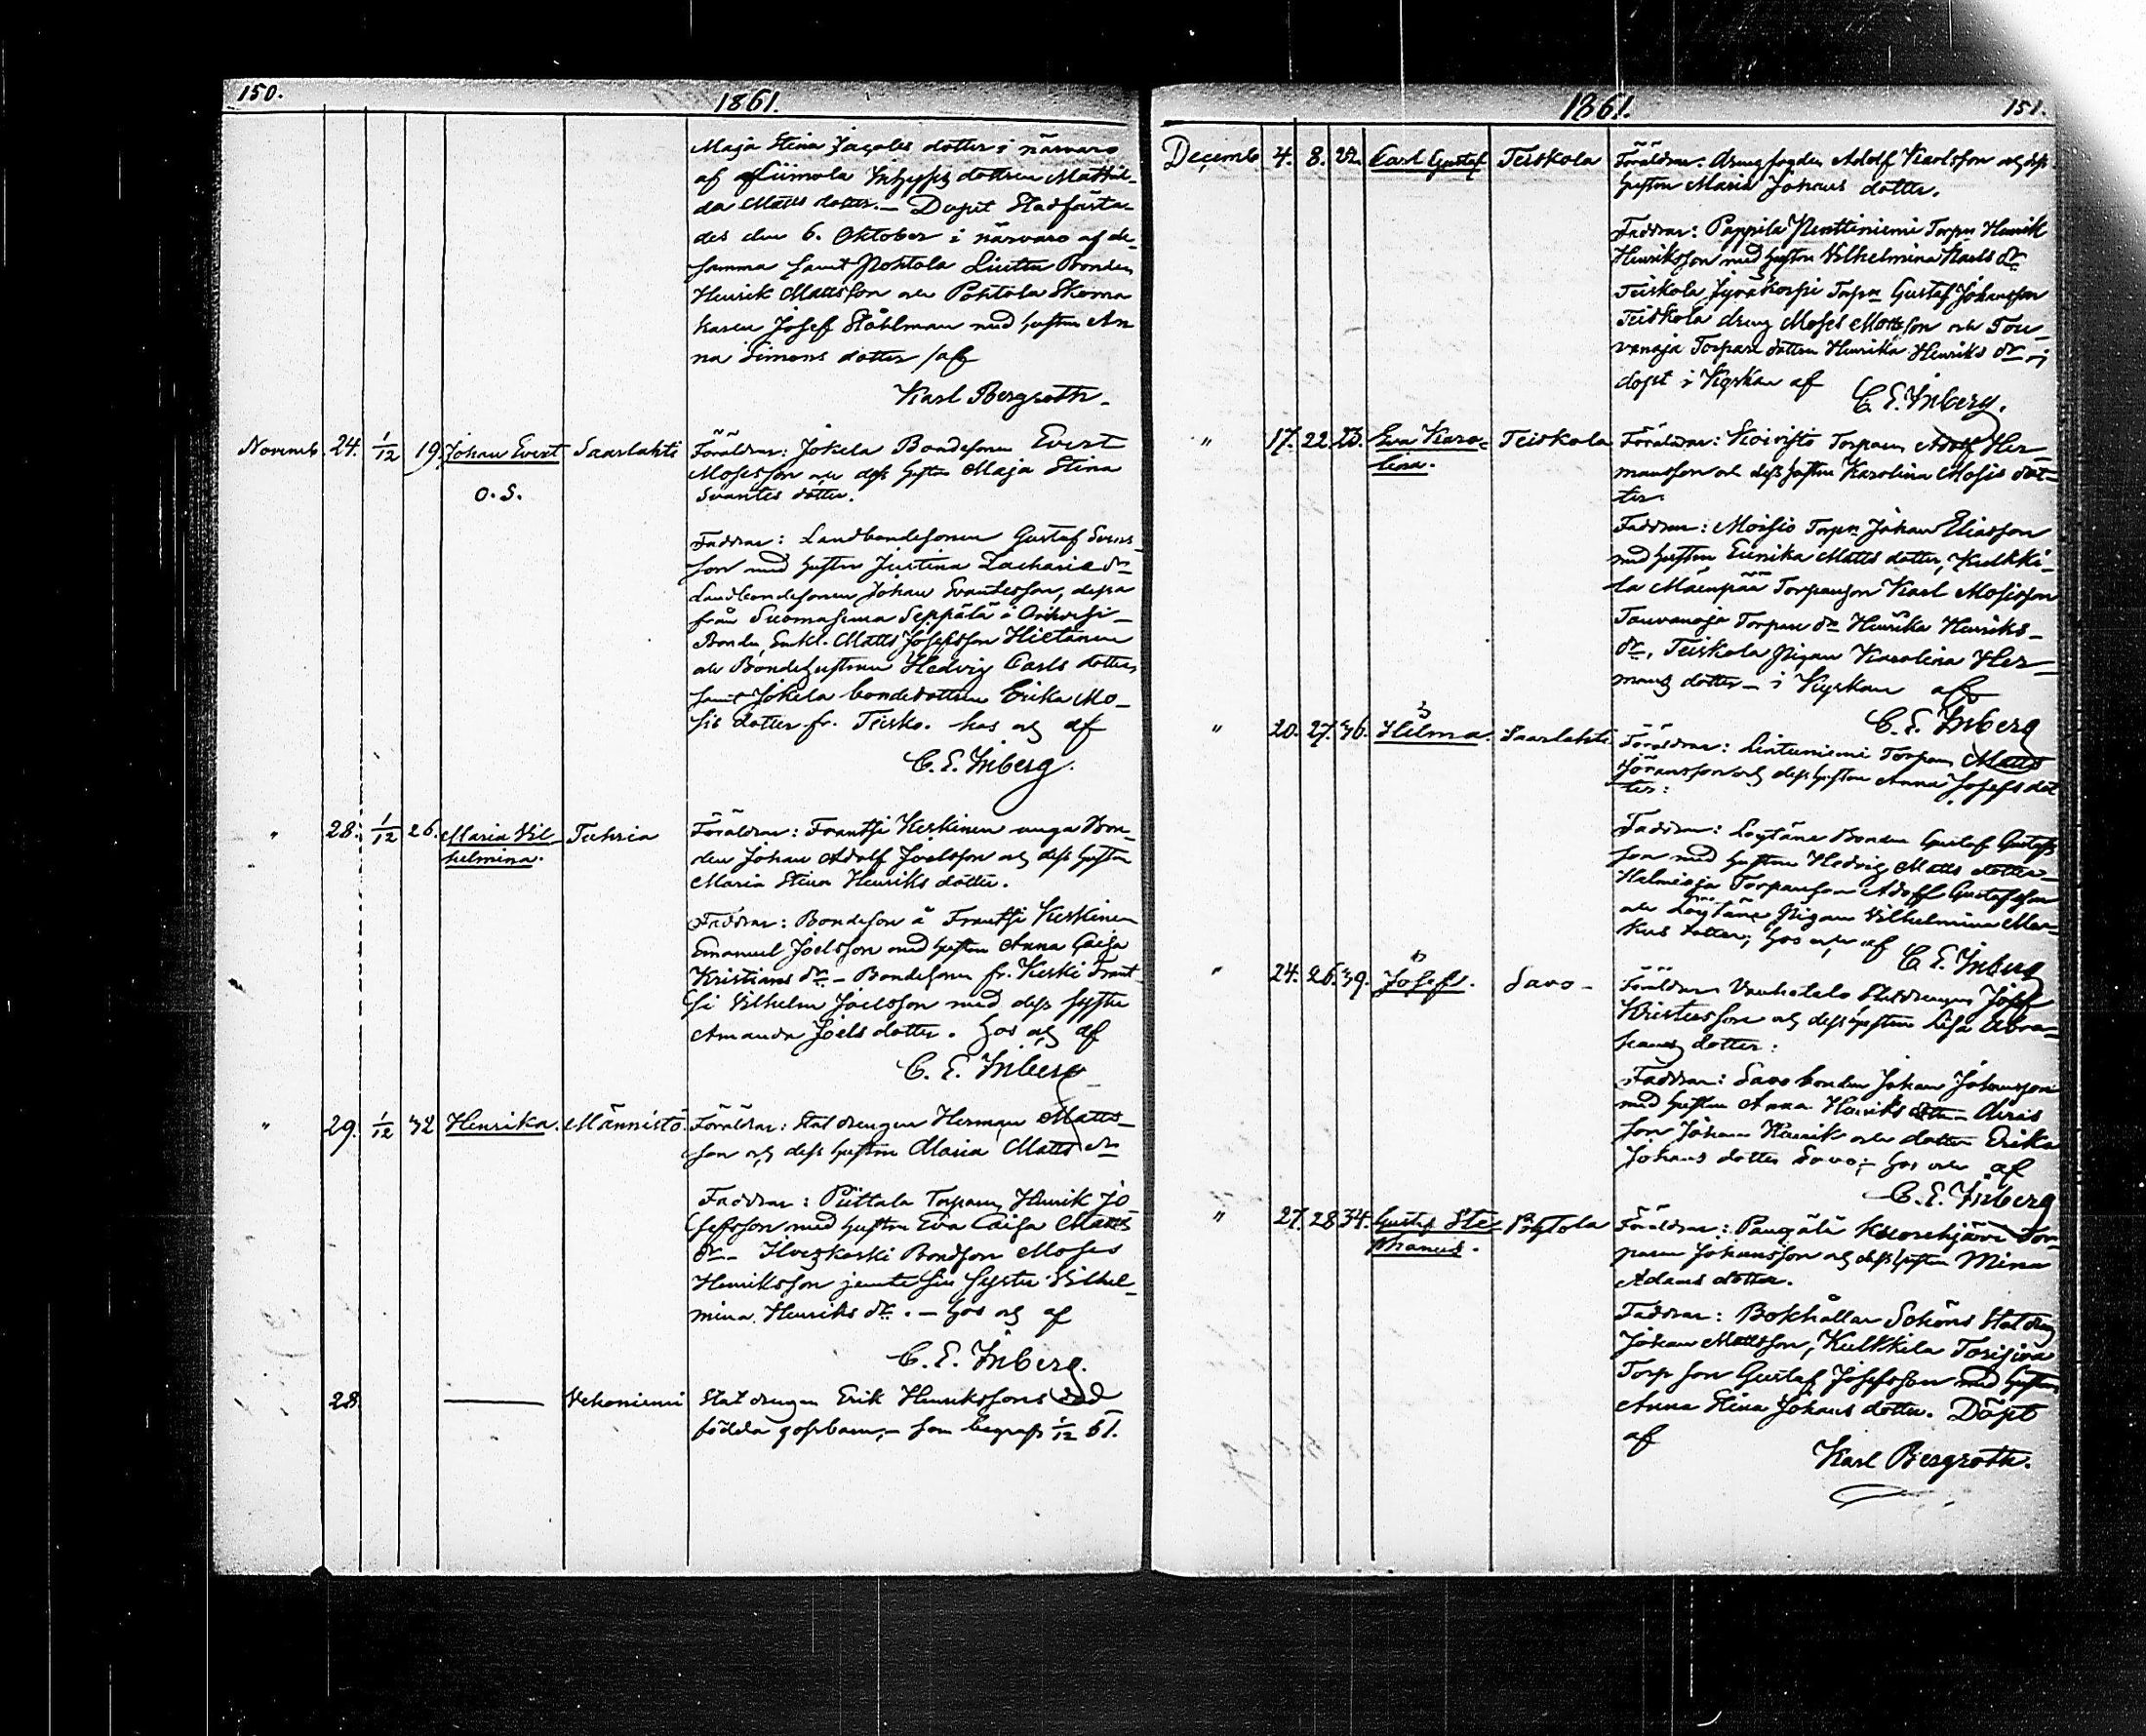 150.
1861.
Maja Stina Jacobs dotter i närvaro
af dottren Mathil-
da Matts dotter. – Dopet Stadfästa-
des den 6. Oktober i närvaro af de-
samma samt Pohtola Bonden
Henrik Mattsson och Pohtola Skoma
karen Josef Ståhlman med hustru An
na Simons dotter /af
Karl Bergroth.
Novemb. 24. 1/12 19. Johan Evert Saarlahti Föräldrar: Jokela Bondesonen Evert
Mosesson och dess hustru Maja Stina
O.S.
Svantes dotter.
Faddrar: Landbondesonen Gustaf Svens-
son med hustru Justina Zacharie dr
Landbondesonen Johan Svantesson, dessa
från Seppälä i
Bonden Matts Josefsson Hietanen
och Bondehustrun Hedvig Carls dotter,
samt Jokela bondedottren Erika Mo-
sis dotter fr. Teisko. hos og af
C. E. Inberg.
" 28. 1/12 26. Maria Vil- Tuhria Föräldrar: Frantsi Keskinen unga Bon-
helmina.
den Johan Adolf Joelsson och dess hustru
Maria Stina Henriks dotter.
Faddrar: Bondeson å Frantsi Keskinen
Emanuel Joelsson med hustru Anna Caisa
Kristians dr – Bondesonen fr. Keski Frant
si Vilhelm Joelsson med dess syster
Amanda Joels dotter. hos og af
C. E. Inberg
" 29. 1/12 32 Henrika. Männistö. Föräldrar: Statdrengen Herman Matts-
son och dess hustru Maria Matts dr
Faddrar: Torparen Henrik Jo-
sefsson med hustru Eva Caisa Matts
dr – Bondson Moses
Henriksson jemte sin syster Vilhel-
mina Henriks dr. – hos og af
C. E. Inberg.
28 — Vehoniemi Statdrengen Erik Henrikssons död
födda gossbarn, – som begrafs 1/12 61.
1861.
151.
Decemb 4. 8. 22. Carl Gustaf Teiskola Föräldrar: drengfogden Adolf Karlsson och dess
hustru Maria Johans dotter.
Faddrar: Pappila Penttiniemi Torpn Henrik
Henriksson med hustru Vilhelmina Karls dr
Teiskola Torpn Gustaf Johansson
Teiskola dreng Moses Mattsson och Tou-
vanoja Torpare dottren Henrika Henriks dr –;
döpt i Kyrkan af
C. E. Inberg.
" 17. 22. 23. Eva Karo- Teiskola Föräldrar: Koivisto Torparen Adolf Her-
lina.
mansson och dess hustru Karolina Mosis dot-
ter.
Faddrar: Moisio Torpn Johan Eliasson
med hustru Eerika Matts dotter, Kulkki-
la Mäenpää Torpareson Karl Mosisson
Touvanoja Torpare dr Henrika Henriks-
dr, Teiskola Pigan Karolina Her-
mans dotter – i Kyrkan af
C. E. Inberg
" 20. 27. 36. Hilma. Saarlahti Föräldrar: Lintuniemi Torparen Matts
Göransson och dess hustru Anna Josefs dot
ter:
Faddrar: Löytäne Bonden Gustaf Gustafs
son med hustru Hedvig Matts dotter –
Torpareson Adolf Gustafsson
och Löytäne Pigan Vilhelmina Mar-
kus dotter; hos och af
C. E. Inberg
" 24. 26. 39. Josefs. Savo – Föräldrar Statdrengen Josef
Kristersson och dess hustru Lisa Abra-
hams dotter:
Faddrar: Savo bonden Johan Johansson
med hustru Anna Henriks dotter
son Johan Henrik och dotter Erika
Johans dotter Savo; – hos och af
C. E. Inberg
" 27. 28 34. Gustaf Ste- Föräldrar: Tor-
phanus.
paren Johansson och dess hustru Mina
Adams dotter.
Faddrar: Bokhållar Schöns Statdreng
Johan Mattsson, Kulkkila
Torp son Gustaf Josefsson med hustru
Anna Stina Johans dotter. Döpt
af
Karl Bergroth.